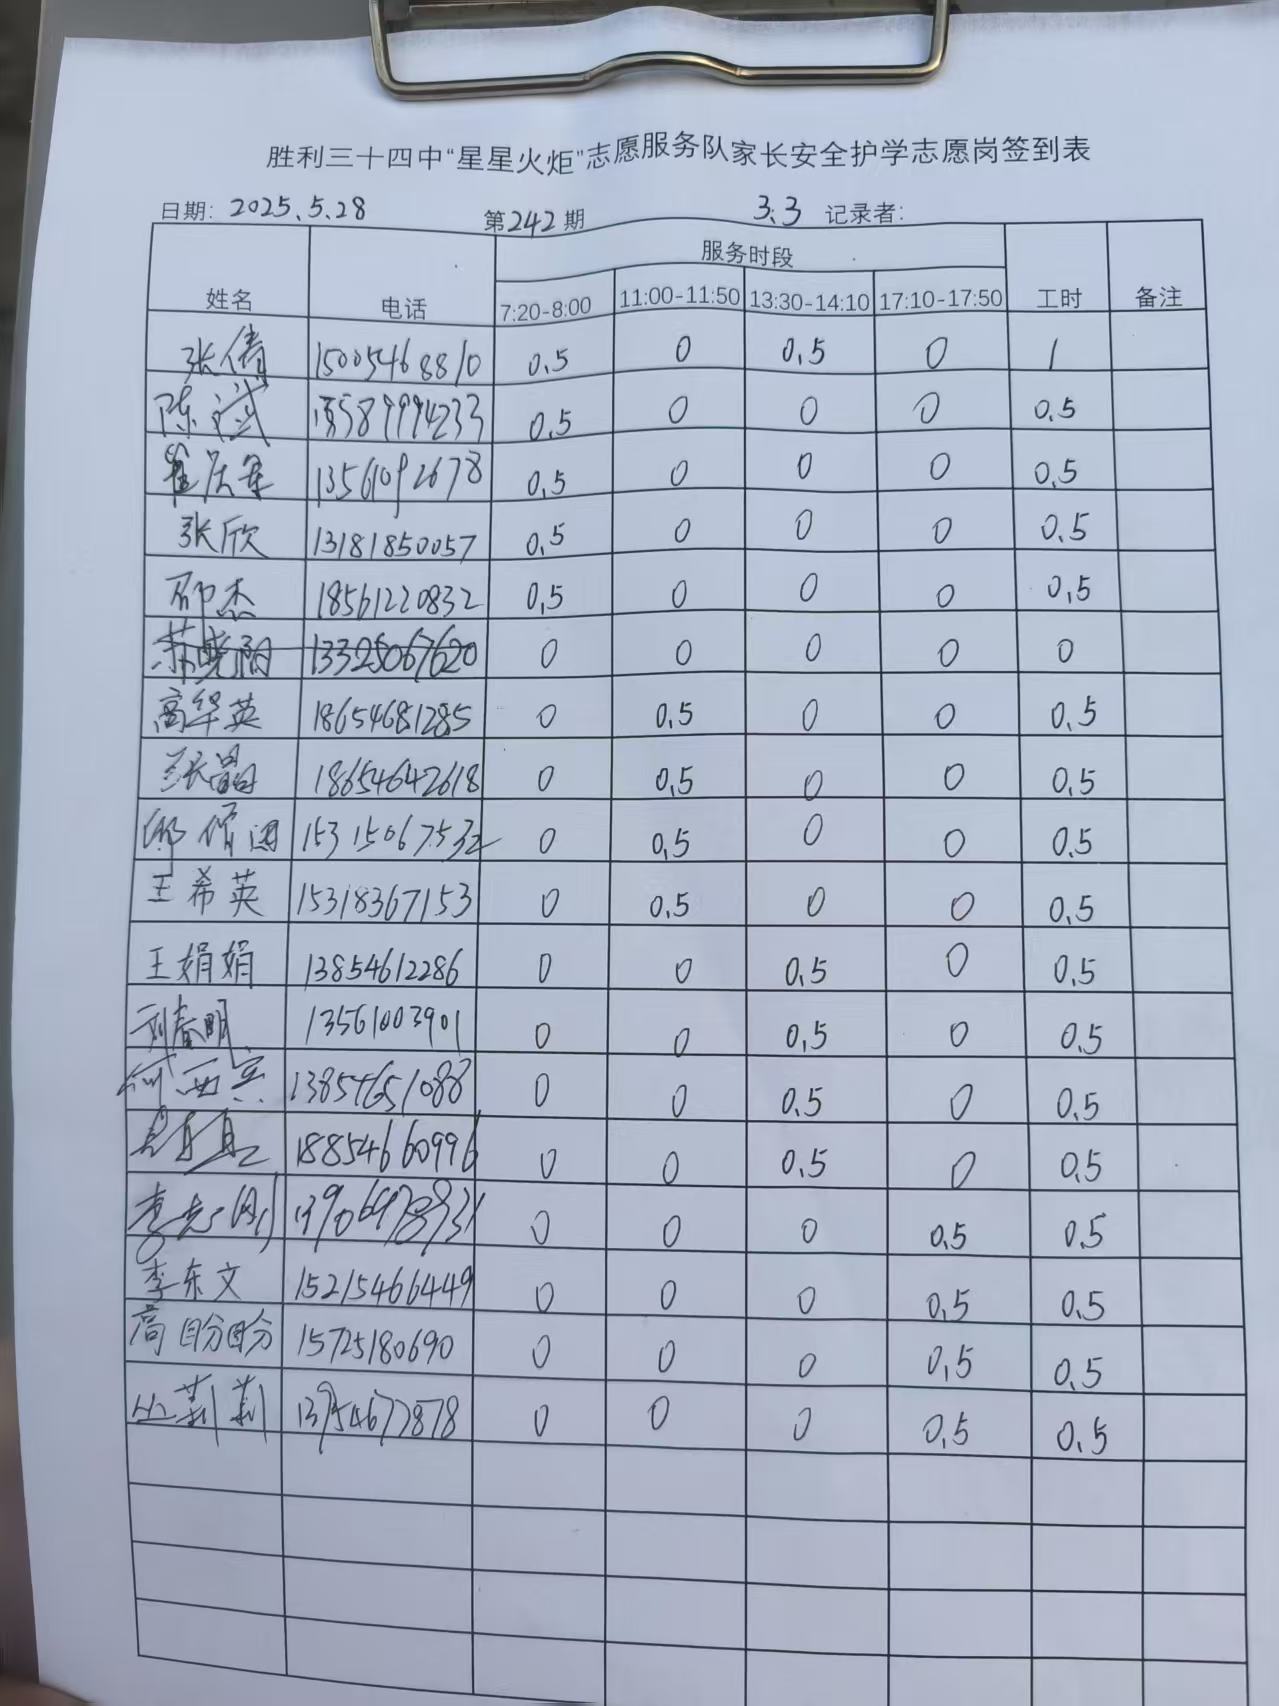 胜利三十四中“星星火炬”志愿服务队家长安全护学志愿岗签到表
日期: 2025.5.28 第242期 3.3 记录者:
姓名 电话 服务时段 工时 备注
7:20-8:00 11:00-11:50 13:30-14:10 17:10-17:50
张倩 15005468810 0.5 0 0.5 0 1
陈斌 0.5 0 0 0 0.5
崔庆军 13561092678 0.5 0 0 0 0.5
张欣 13181850057 0.5 0 0 0 0.5
邵杰 18561220832 0.5 0 0 0 0.5
13325067620 0 0 0 0 0
高华英 18654681285 0 0.5 0 0 0.5
张晶 18654642618 0 0.5 0 0 0.5
15315067532 0 0.5 0 0 0.5
王希英 15318367153 0 0.5 0 0 0.5
王娟娟 13854612286 0 0 0.5 0 0.5
刘春明 13561003901 0 0 0.5 0 0.5
何西宾 13854651088 0 0 0.5 0 0.5
18854660996 0 0 0.5 0 0.5
0 0 0 0.5 0.5
李东文 15215466449 0 0 0 0.5 0.5
高盼盼 15725180690 0 0 0 0.5 0.5
丛莉莉 0 0 0 0.5 0.5